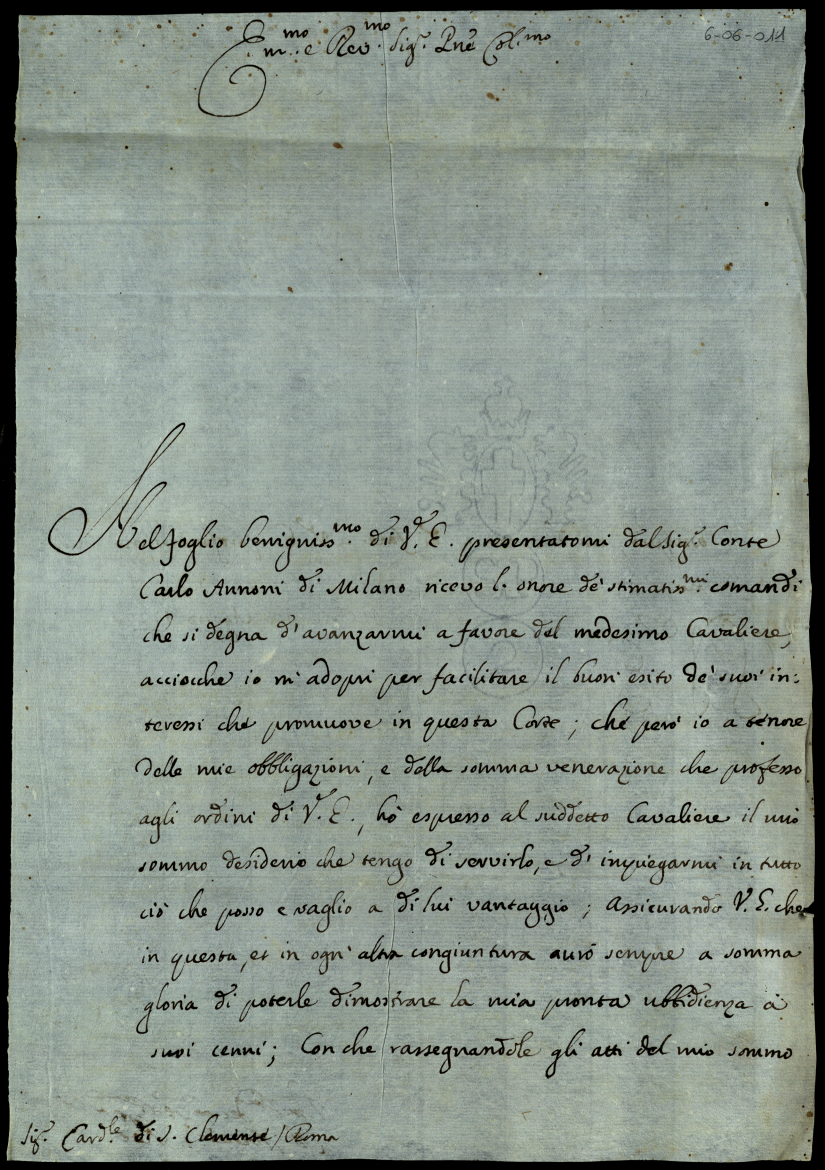 6-06-011
Em.mo e Rev.mo Sig.r Pne Col.mo
Nel foglio benigniss.mo di V.a E. presentatomi dal Sig.r Conte
Carlo Annoni di Milano ricevo l'onore de' stimatiss.mi comandi
che si degna d'avanzarmi a favore del medesimo Cavaliere,
acciocche io m'adopri per facilitare il buon esito de' suoi in:
teressi che promuove in questa Corte; che però io a tenore
delle mie obbligazioni, e della somma venerazione che professo
agli ordini di V.a E., hò espresso al suddetto Cavaliere il mio
sommo desiderio che tengo di servirlo, e d'impiegarmi in tutto
ciò che posso e vaglio a di lui vantaggio; Assicurando V.E. che
in questa, et in ogni altra congiuntura aurò sempre a somma
gloria di poterle dimostrare la mia pronta ubbidienza a
suoi cenni; Con che rassegnandole gli atti del mio sommo
Sig.r Card.le di S. Clemente / Roma